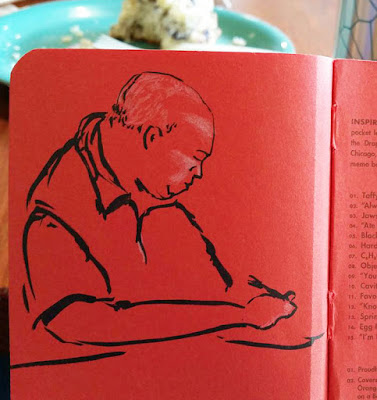 INSPIR
pocket
the
Chicago,
meme
01. Taffy
02. "Alw
03. Jaws
04. "Ate
05. Black
06. Hand
07.
08. Objec
09. "You
10. Cavi
11. Favo
12. "Kno
13. Sprin
14. Egg
15. "I'm
01. Proudl
02. Covers
Orang
on a